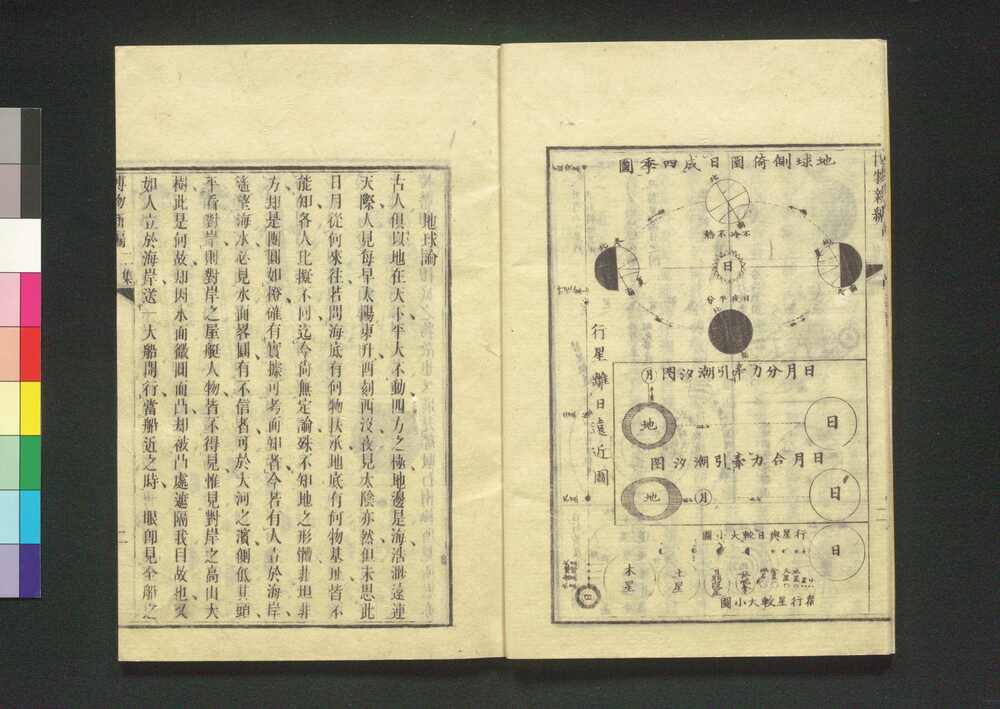 地球側倚圜日成四季圖
不冷不熱
日
日夜平分
行星離日遠近圖
日月分力牽引潮汐圖
月
地
日
日月合力牽引潮汐圖
地
月
日
行星與日較大小圖
日
木星
土星
衆行星較大小圖
日
地球論
古人俱以地在天下平大不動四方之極地邊是海浩渺遠連
天際人見每早太陽東升酉刻西沒夜見太陰亦然但未思此
日月從何來往若問海底有何物扶承地底有何物基址皆不
能知各人比擬不同迄今尚無定論殊不知地之形體非坦非
方却是團圓如橙確有實據可考而知者今若有人立於海岸
遙望海水必見水面畧圓有不信者可於大河之濱側低其頭
平看對岸則對岸之屋艇人物皆不得見惟見對岸之高山大
樹此是何故却因水面微圓而凸却被凸處遮隔我目故也又
如人立於海岸送一大船開行當船近之時一眼即見全船之
博物新編 二集
二